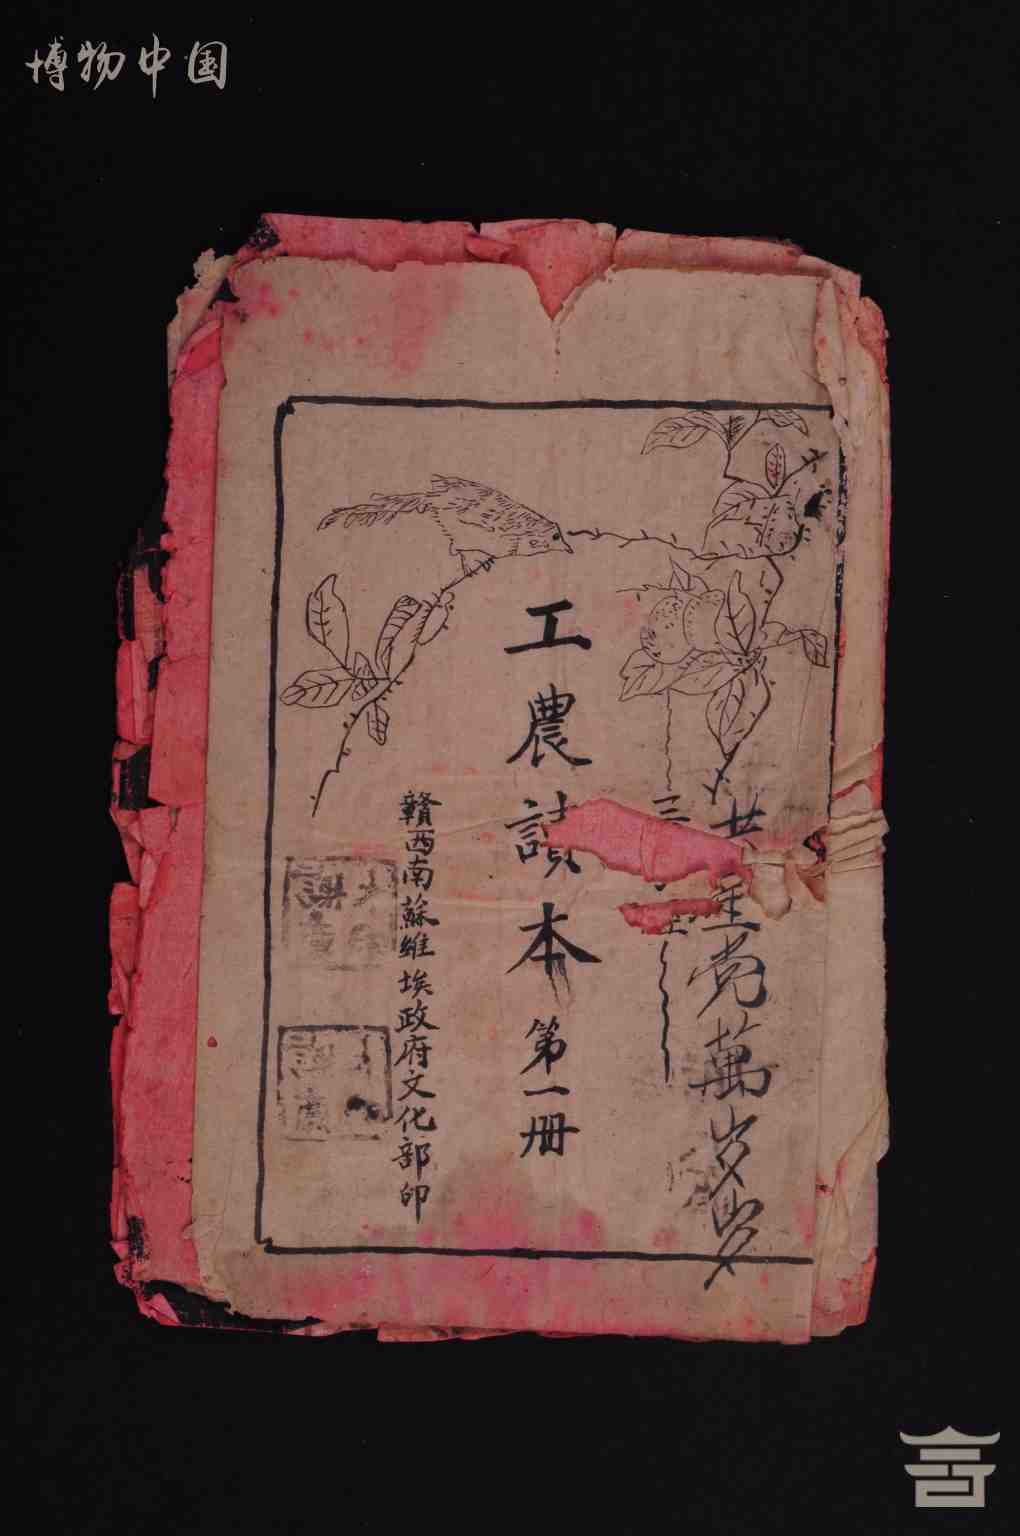 博物中国
党萬岁岁
三
工農讀本第一冊
贛西南蘇維埃政府文化部印